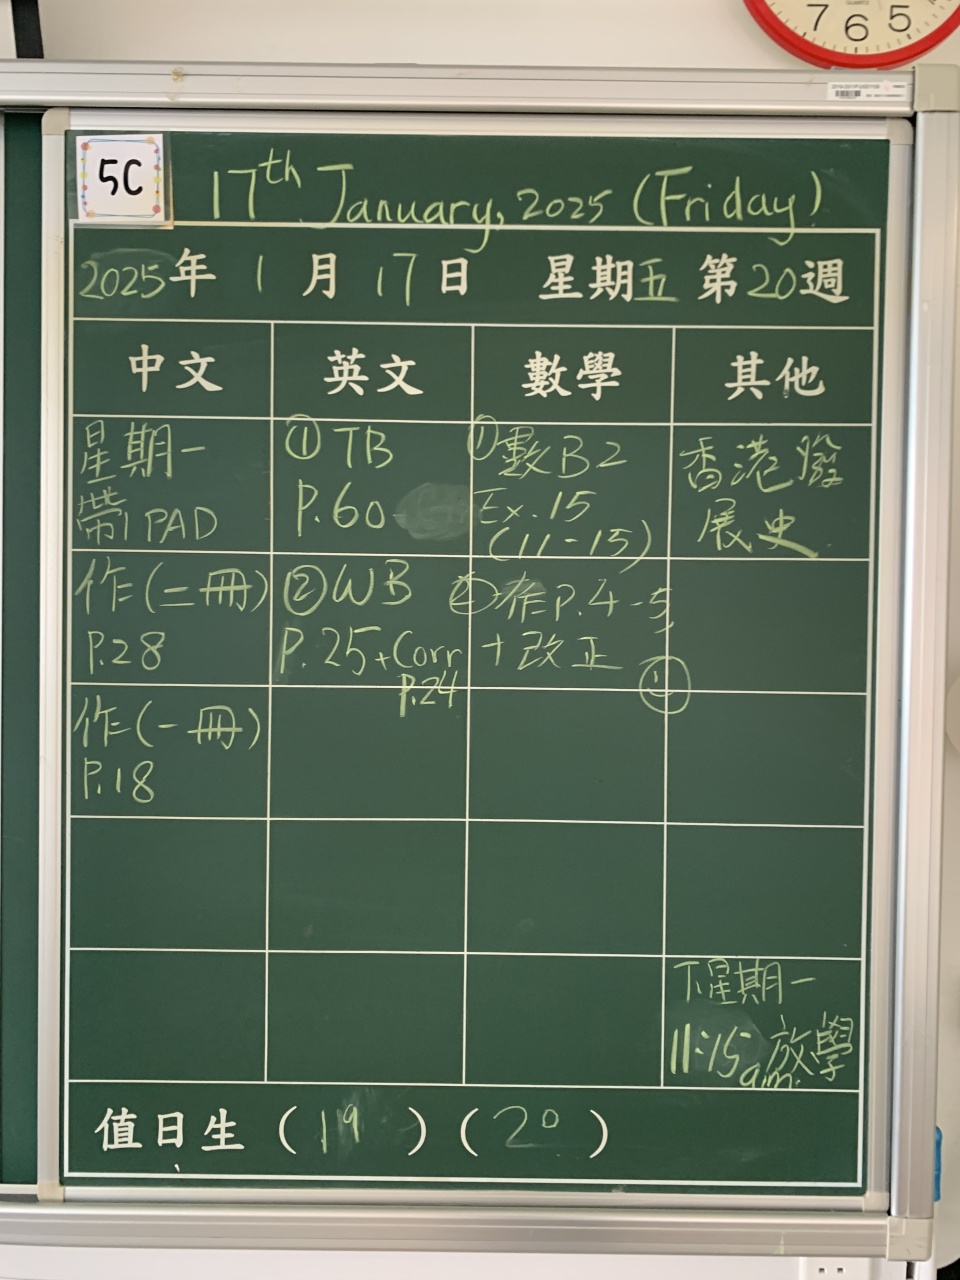 7 6 5
QUARTZ
5C
17th January, 2025 (Friday)
2025年 1 月 17日 星期五 第20週
中文 英文 數學 其他
星期一
帶IPAD
① TB
P.60
① 數B2
Ex.15
(11-15)
香港發
展史
作(二冊)
P.28
② WB
P.25+Corr
P.24
② 作P.4-5
+改正
①
作(一冊)
P.18
下星期一
11:15 a.m. 放學
值日生 ( 19 ) ( 20 )